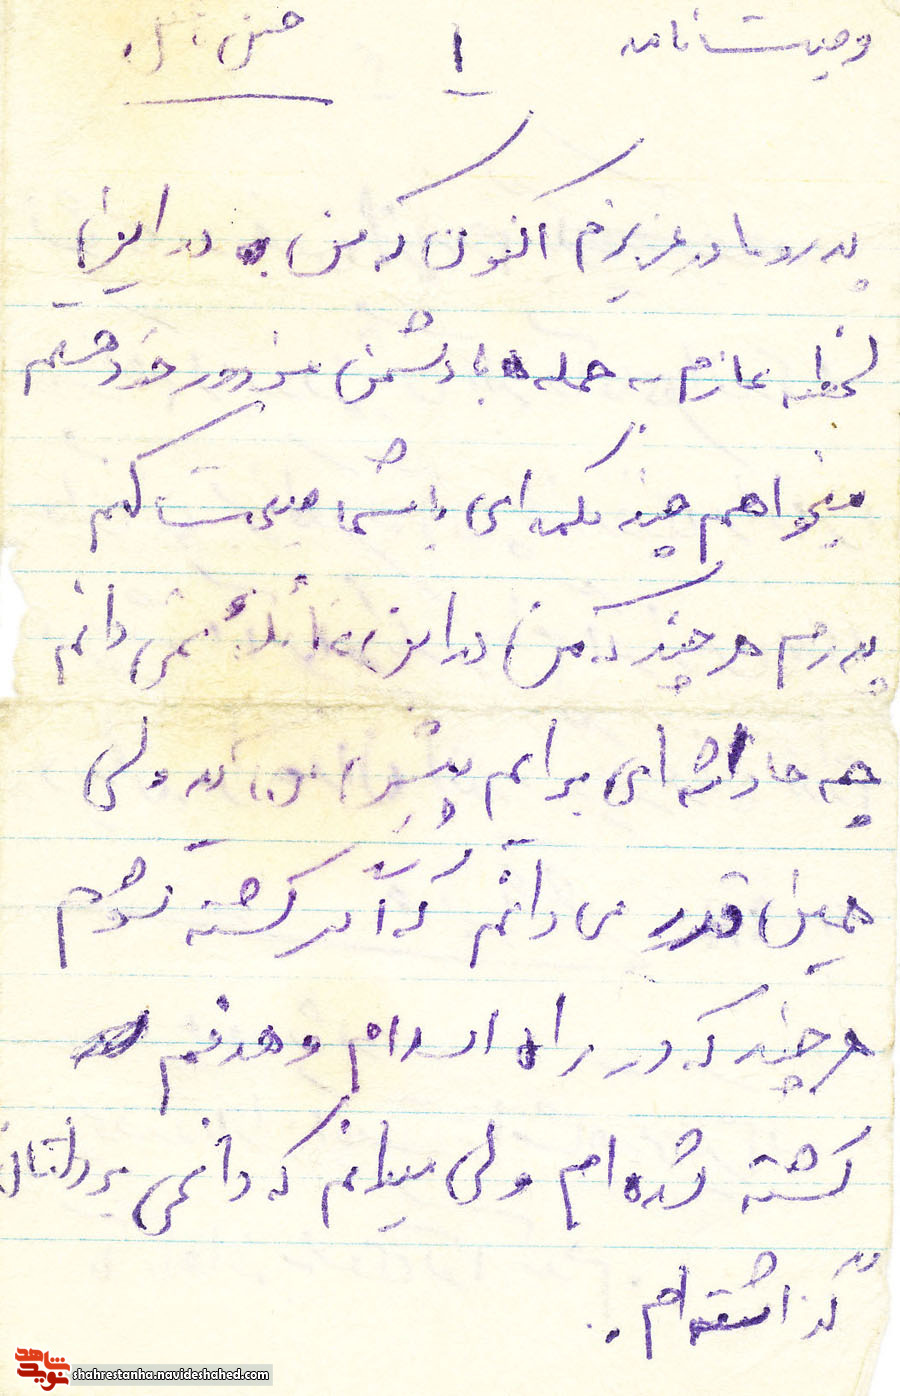 وصیت نامه ۱ حسن
پدر و مادر عزیزم اکنون که من در این
لحظه عازم به حمله با دشمن مزدور خود هستم
میخواهم چند کلمه ای با شما صحبت کنم
پدرم هر چند که من در این عائله نمی دانم
چه حادثه ای برایم پیش می آید ولی
همین قدر می دانم که اگر کشته شوم
هر چند که در راه اسلام و هدفم
کشته شده ام ولی میدانم که داغی بر دلتان
گذاشته ام .
شاهد
نوید
shahrestanha.navideshahed.com